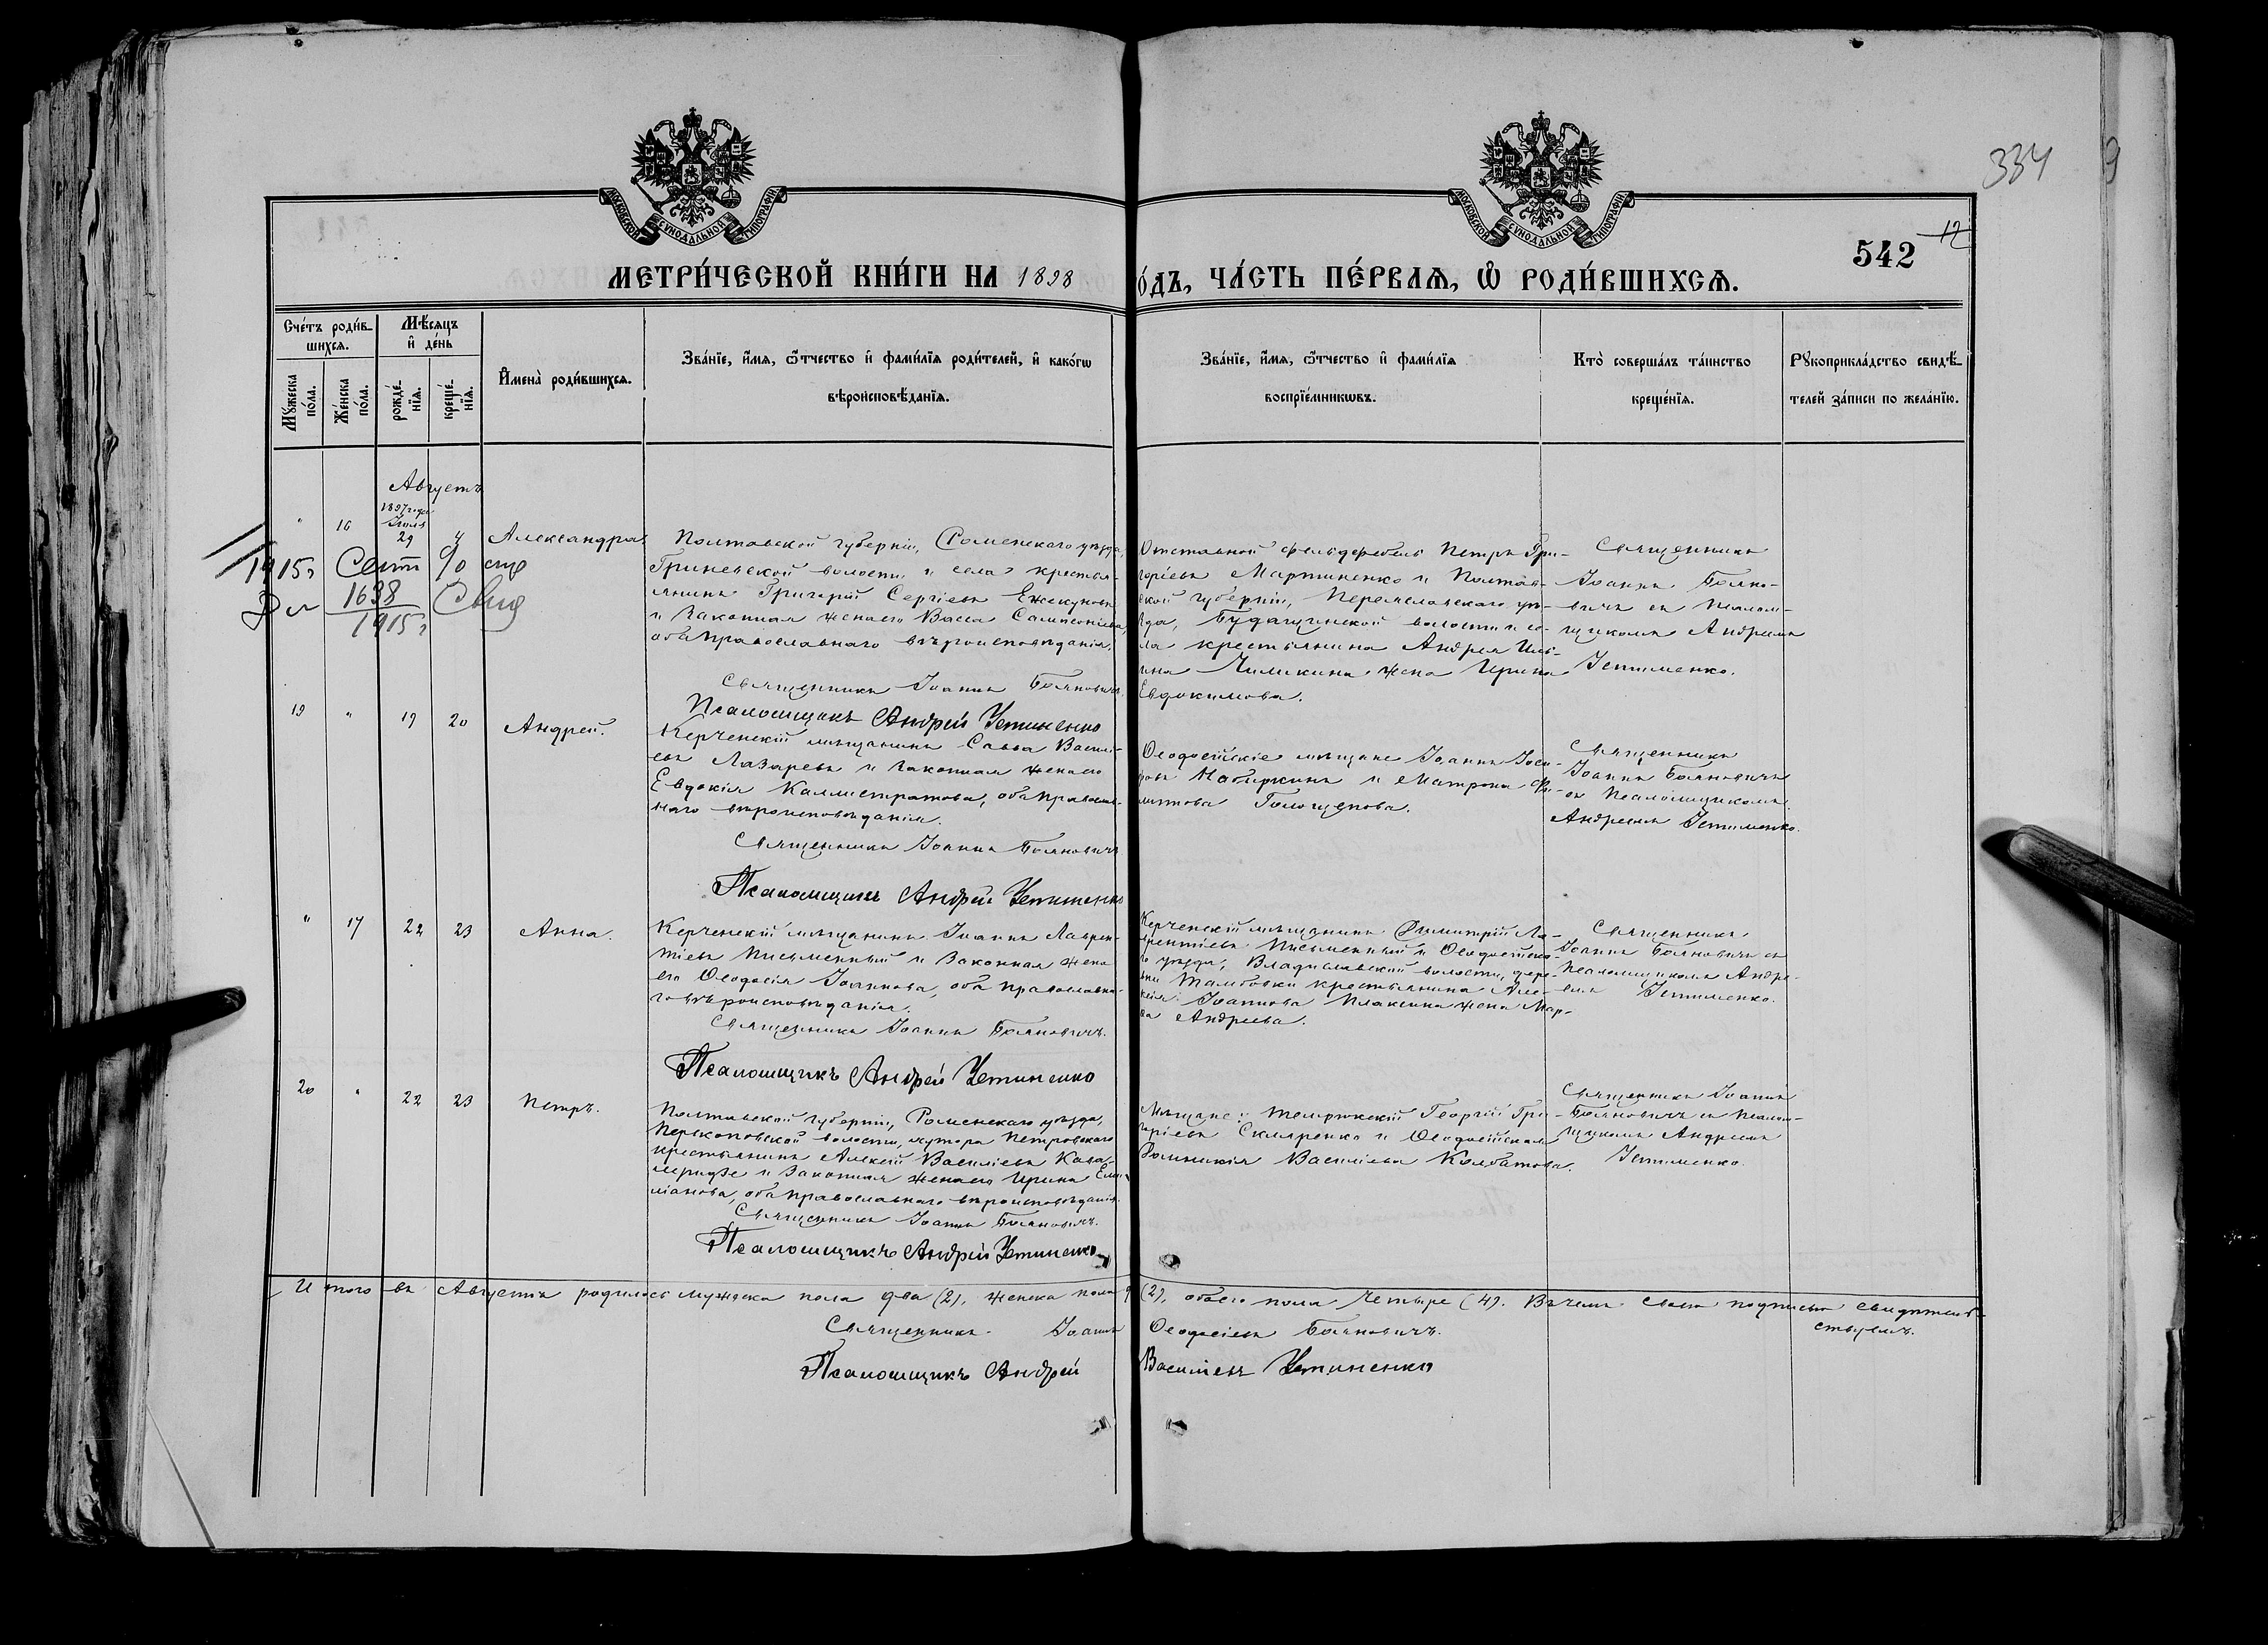 334
9
12
542
МОСКОВСКОЙ СѴНОДАЛЬНОЙ ТИПОГРАФІИ
МОСКОВСКОЙ СѴНОДАЛЬНОЙ ТИПОГРАФІИ
МЕТРИ́ЧЕСКОЙ КНИ́ГИ НА 1898
О́ДЪ, ЧА́СТЬ ПЕ́РВАѦ, Ѽ РОДИ́ВШИХСѦ.
Сче́тъ роди́в-
шихсѧ.
Мѣ́сѧцъ
и҆ де́нь
Мꙋ́жеска
по́ла.
Же́нска
по́ла.
рожде́-
нїѧ.
креще́-
нїѧ.
И҆мена̀ роди́вшихсѧ.
Зва́нїе, и҆́мѧ, ѻ҆́тчество и҆ фами́лїѧ роди́телей, и҆ како́гѡ
вѣроисповѣ́данїѧ.
Зва́нїе, и҆́мѧ, ѻ҆́тчество и҆ фами́лїѧ
воспрїе́мникѡвъ.
Кто̀ соверша́лъ та́инство
креще́нїѧ.
Рꙋкоприкла́дство свидѣ́-
телей за́писи по жела́нїю.
Августъ
1897 года
Іюля
" 16 29 4 Александра
1915 г Сент
1638
1915 г
Полтавской губерніи, Роменскаго уѣзда,
Гриневской волости и села крестья-
янинъ Григорій Сергіевъ
и законная жена его Васса Сампсоніева,
оба православнаго вѣроисповѣданія.
Священникъ Іоаннъ Бояновичъ
Псаломщикъ Андрей Устименко
Отставной фельдфебель Петръ Гри-
горіевъ Мартиненко и Полтав-
ской губерніи, уѣ-
зда, волости и се-
ла крестьянина Андрея Иль-
ина жена Ирина
Евдокимова.
Священникъ
Іоаннъ Бояно-
вичъ съ псалом-
щикомъ Андреемъ
Устименко.
19 " 19 20 Андрей.
Керченскій мѣщанинъ Савва Василі-
евъ Лазаревъ и законная жена его
Евдокія Каллистратова, оба православ-
наго вѣроисповѣданія.
Священникъ Іоаннъ Бояновичъ
Псаломщикъ Андрей Устименко
Ѳеодосійскіе мѣщане Іоаннъ Іоси-
фовъ и Матрона Фи-
липова
Священникъ
Іоаннъ Бояновичъ
съ псаломщикомъ
Андреемъ Устименко.
" 17 22 23 Анна.
Керченскій мѣщанинъ Іоаннъ Лаврен-
тіевъ Письменный и законная жена
его Ѳеодосія Іоаннова, оба православна-
го вѣроисповѣданія.
Священникъ Іоаннъ Бояновичъ.
Псаломщикъ Андрей Устименко
Керченскій мѣщанинъ Димитрій Ла-
врентіевъ Письменный и Ѳеодосійска-
го уѣзда, Владиславской волости, дере-
вни Тамбовки крестьянина Але-
ксія Іоаннова Плаксина жена Мар-
ѳа Андреева.
Священникъ
Іоаннъ Бояновичъ съ
псаломщикомъ Андре-
емъ Устименко.
20 " 22 23 Петръ.
Полтавской губерніи, Роменскаго уѣзда,
Перекоповской волости, хутора Петровскаго
крестьянинъ Алексій Василіевъ
и законная жена его Ирина Еми-
ліанова, оба православнаго вѣроисповѣданія.
Священникъ Іоаннъ Бояновичъ.
Псаломщикъ Андрей Устименко
Мѣщане: Темрюкскій Георгій Гри-
горіевъ Скляренко и Ѳеодосійская
Домникія Василіева Колбатова.
Священникъ Іоаннъ
Бояновичъ съ псалом-
щикомъ Андреемъ
Устименко.
Итого въ Августѣ родилось мужеска пола два (2), женска пола (2), обоего пола четыре (4). Въ чемъ своею подписью свидѣтель-
ствуемъ.
Священникъ Іоаннъ Ѳеодосіевъ Бояновичъ.
Псаломщикъ Андрей Василіевъ Устименко